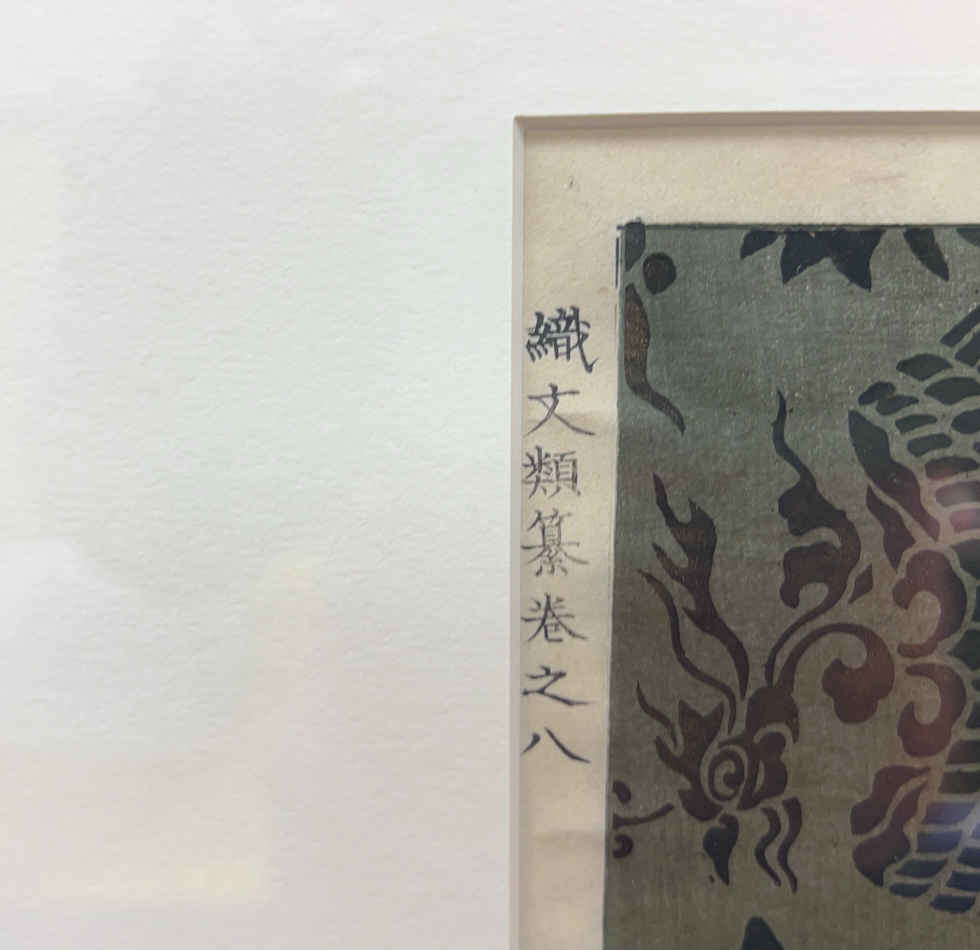 織文類纂卷之八